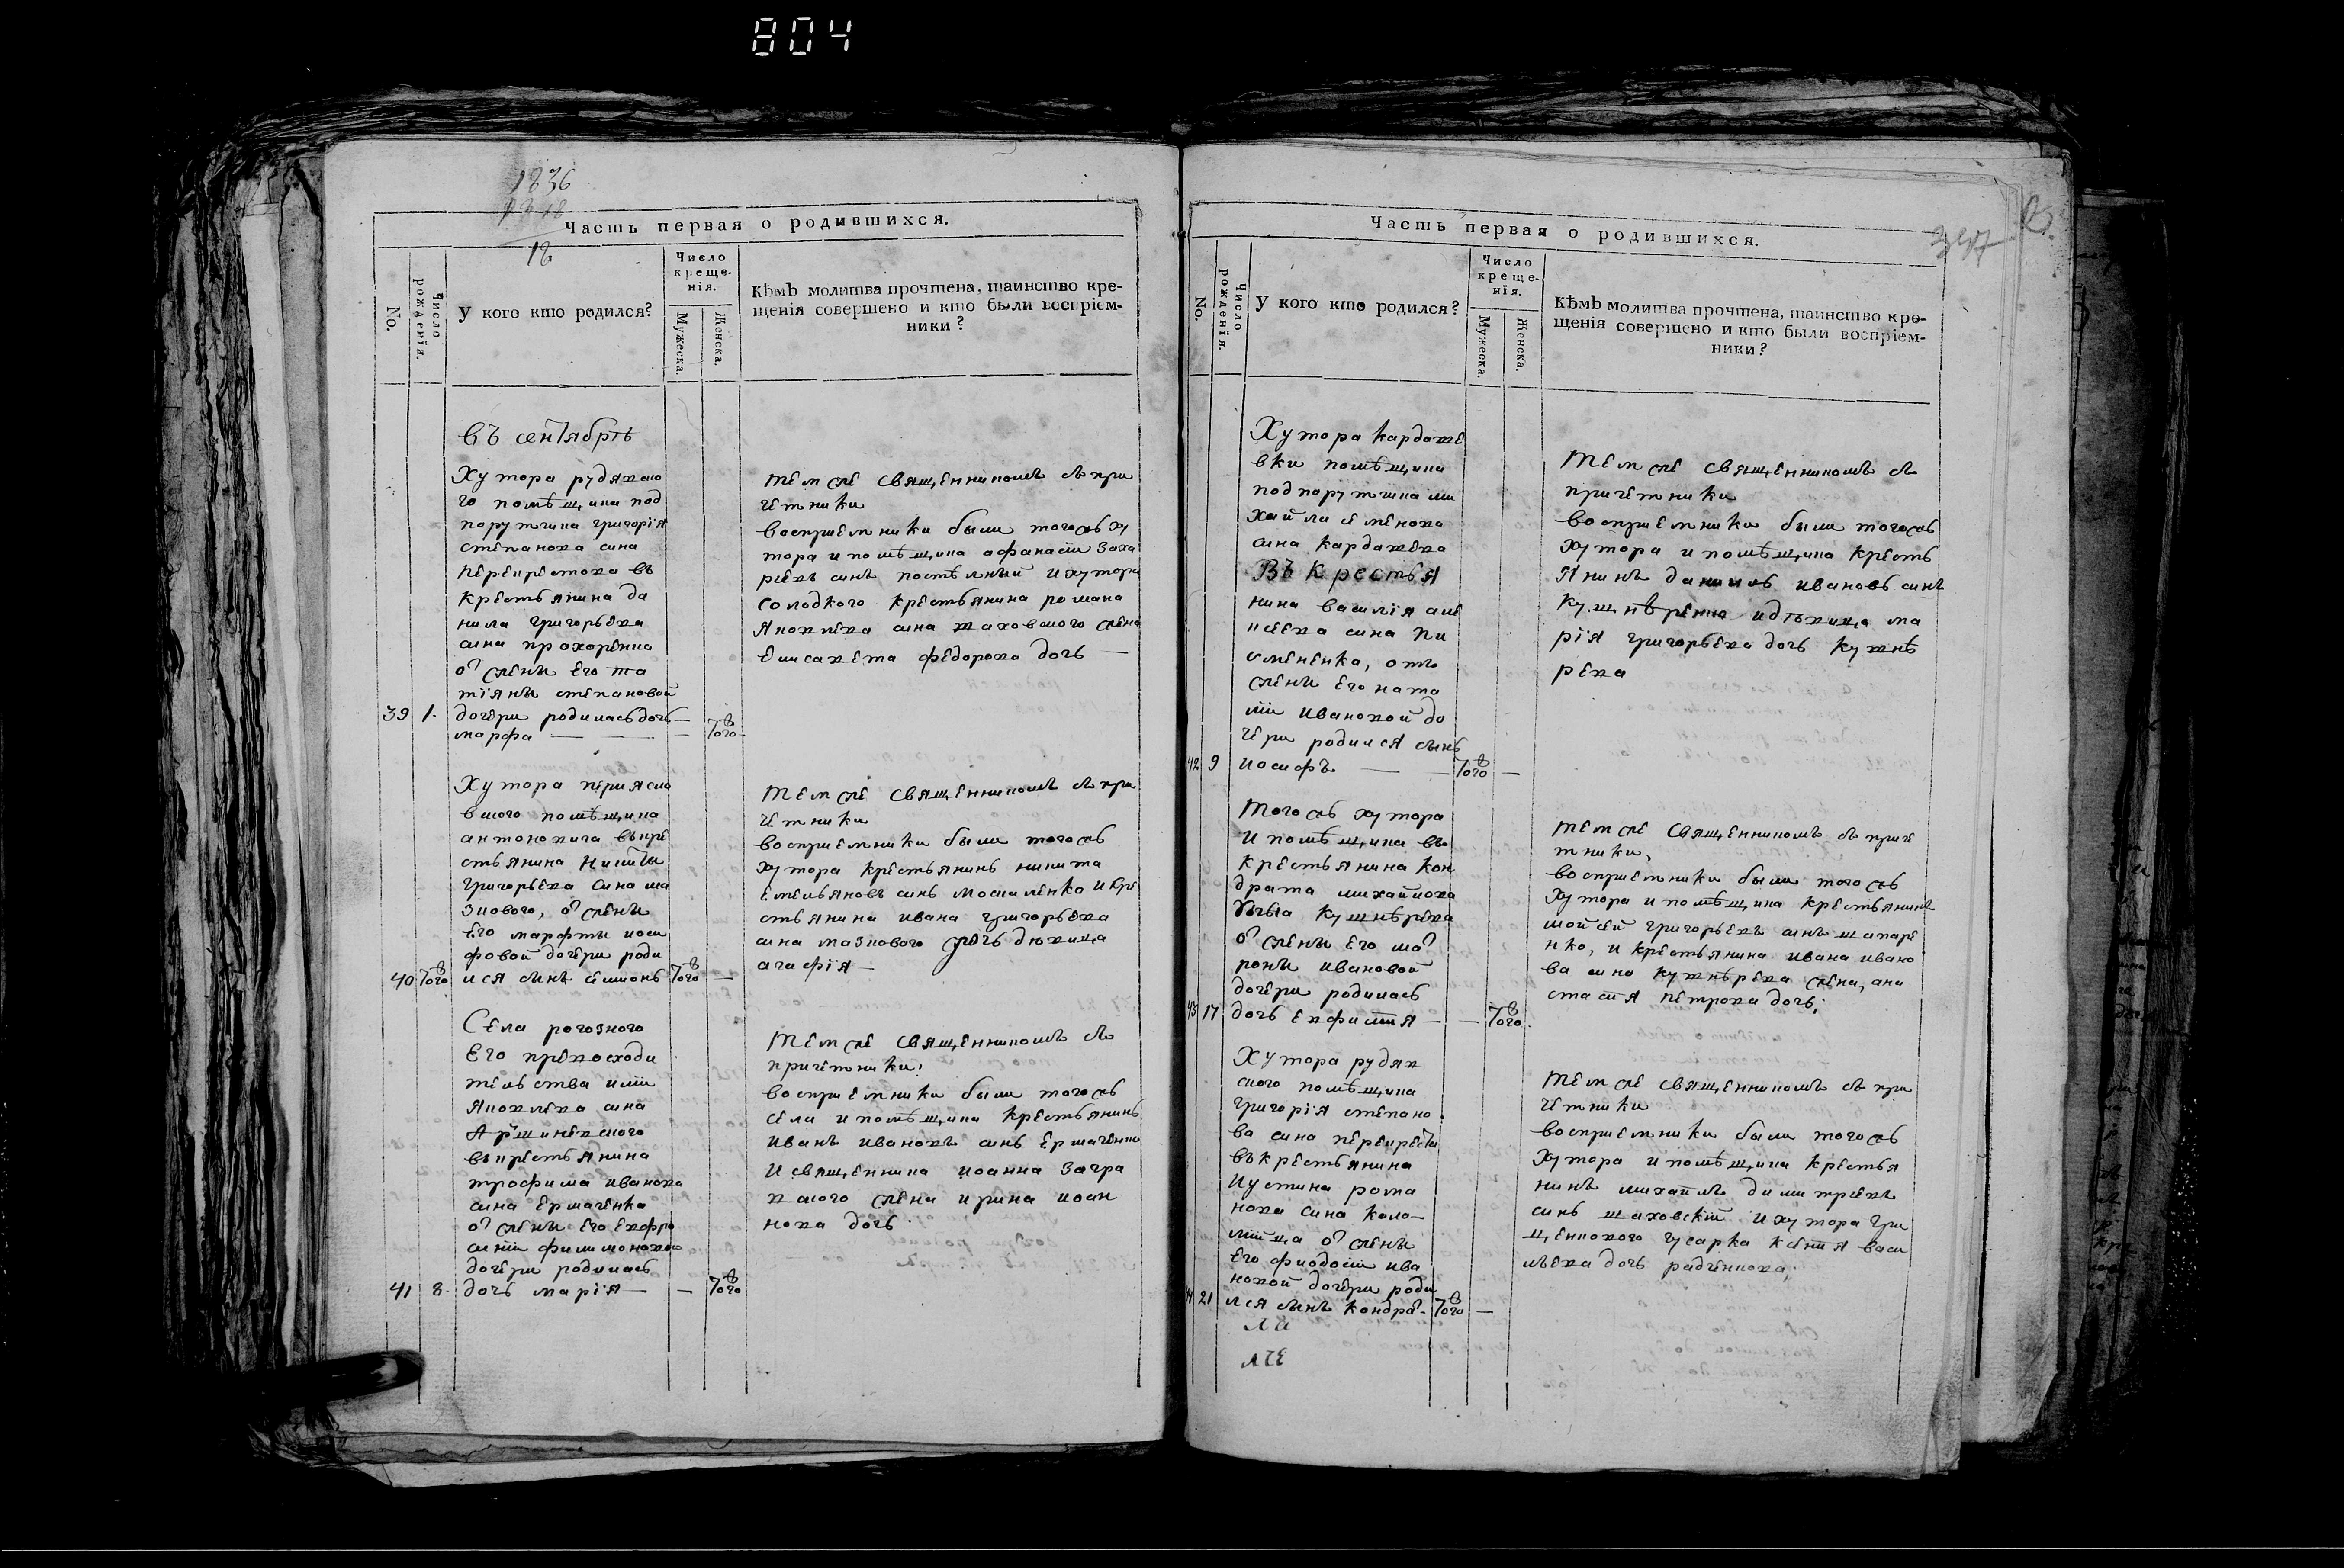 804
1836
18
Часть первая о родившихся.
No.
Число рожденія.
У кого кто родился?
Число креще-
нія.
Мужеска.
Женска.
Кѣмъ молитва прочтена, таинство кре-
щенія совершено и кто были воспріем-
ники?
Въ сентябрѣ
Хутора рудявско
го помѣщика под
порутчика григорія
степанова сина
перекрестова въ
крестьянина да
нила григорьева
сина прохоренка
о᷃ жены его та
тіяны степановой
39 1. дочери родилась дочь —
марфа — — — того
тем же священникомъ съ при
четники
восприемники были тогожъ ху
тора и помѣщика афанасій заха
риевъ синъ постѣлный и хутора
солодкого крестьянина романа
яковлева сина жаховского жена
елисавета федорова дочь —
Хутора переясло
вского помѣщика
антоновича въ кре
стьянина никиты
григорьева сина ма
знового, о᷃ жены
его марфы иоси
фовой дочери роди
40 того лся сынъ симионъ того —
тем же священникомъ съ при
четники
восприемники были тогожъ
хутора крестьянинъ никита
емельяновъ синъ москаленко и кре
стьянина ивана григорьева
сина мазнового дочь девица
агафія —
Села рогозного
его превосходи
тельства иліи
яковлева сина
Аршиневского
въ крестьянина
трофима иванова
сина ермаченка
о᷃ жены его евфро
синіи филимоновой
дочери родилась
41 8. дочь марія — — того
тем же священникомъ съ
причетники:
восприемники были тогожъ
села и помѣщика крестьянинъ
иванъ ивановъ синъ ермаченко
и священника иоанна загра
вского жена ирина иоан
нова дочь.
Часть первая о родившихся.
No.
Число рожденія.
У кого кто родился?
Число креще-
нія.
Мужеска.
Женска.
Кѣмъ молитва прочтена, таинство кре-
щенія совершено и кто были воспріем-
ники?
Хутора кардаше
вки помѣщика
подпорутчика ми
хайла семенова
сина кардашева
Въ крестья
нина василія але
ксеева сина пи
смененка, отъ
жены его ната
ліи ивановой до
чери родился сынъ
42 9 иосифъ — — того —
тем же священникомъ съ
причетники
восприемники были тогожъ
хутора и помѣщика кресть
янинъ даниилъ ивановъ синъ
кушнѣренко и дѣвица ма
рія григорьева дочь кушнѣ
рева
тогожъ хутора
и помѣщика въ
крестьянина кон
драта михайлова
сына кушнѣрева
о᷃ жены его мо᷃
роны ивановой
дочери родилась
43 17 дочь евфимия — — того
тем же священникомъ съ приче
тники,
восприемники были тогожъ
хутора и помѣщика крестьянинъ
мойсей григорьевъ синъ шапаре
нко, и крестьянина ивана ивано
ва сина кушнѣрева жена, ана
стасия петрова дочь;
Хутора рудяв
ского помѣщика
григорія степано
ва сина перекреста
въ крестьянина
иустина рома
нова сина коло-
мійца о᷃ жены
его фиодосіи ива
новой дочери роди
21 лся сынъ кондра᷃ — того —
тем же священникомъ съ при
четники
восприемники были тогожъ
хутора и помѣщика крестья
нинъ михаилъ димитриевъ
синъ шаховскій и хутора гри
щенкового гусарка ксенія васи
льева дочь радченкова;